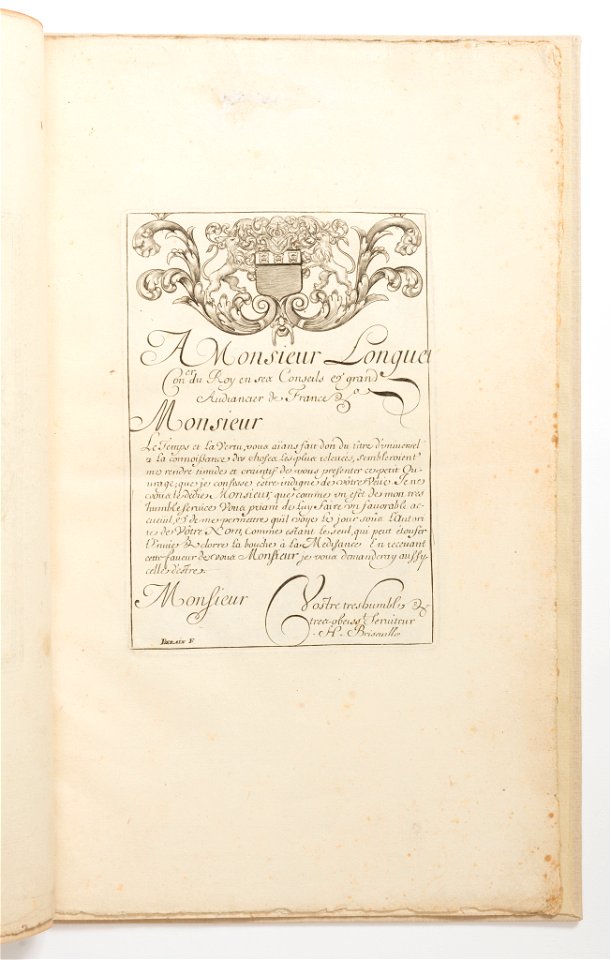 A Monsieur Longuei
Con.er du Roy en ses Conseils et grand
Audiancier de France
Monsieur
Le Temps et la Vertu, vous aians fait don du titre d'universel
a la connoissance des choses les plus relevées, sembleroient
me rendre timide et craintif de vous presenter ce petit Ou-
urage, que je confesse estre indigne de vôtre Veüe Je ne
vous le dedie Monsieur, que comme un efét de mon tres
humble seruices Vous priant de Luy faire un fauorable ac-
cueuil, et de me permettre quil voye le jour sous l'Autori
té de Vôtre Nom, comme estant le seul, qui peut étoufer
l'Enuie & clorre la bouche a la Medisance En receuant
cette faueur de vous Monsieur je vous demanderay aussy
celle d'estre.
Monsieur
Vostre treshumble &
tres-obeiss.t Seruiteur
H. Briseuille
BERAIN F